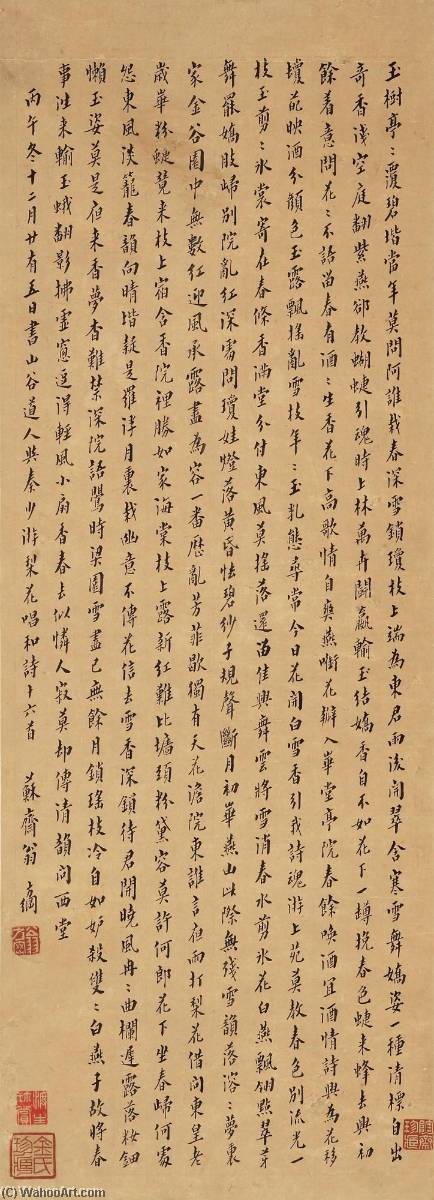 玉樹亭〻覆碧堦當年莫問阿誰栽春深雪鎖瓊枝上端為東君雨後開翠含寒雪舞嬌姿一種清標自出
奇香淺空庭翻紫燕卻教蝴蝶引魂時上林萬卉鬪贏輸玉結嬌香自不如花下一樽挽春色蝶來蜂去與初
餘着意問花〻不語留春有酒〻生香花下高歌情自爽燕啣花瓣入華堂亭院春餘喚酒宜酒情詩興為花移
瓊葩映酒分顏色玉露飄搖亂雪枝年〻玉孔態尋常今日花開白雪香引我詩魂游上苑莫教春色別流光一
枝玉剪〻冰裳寄在春條香滿堂分付東風莫搖落還留佳興舞雲將雪消春水剪冰花白燕飄翎點翠芽
舞罷嬌肢歸別院亂紅深處問瓊娃燈落黃昏怯碧紗子規聲斷月初華燕山此際無殘雪韻落溶〻夢裏
家金谷園中無數紅迎風承露盡為容一番歷亂芳菲歇獨有天花澹院東誰言夜雨打梨花借問東皇老
歲華粉蝶竟來枝上宿含香院裡勝如家海棠枝上露新紅難比墻頭粉黛容莫許何郎花下坐春歸何處
怨東風淡籠春韻向晴堦疑是羅浮月裏栽幽意不傳花信去雪香深鎖待君開曉風冉〻曲欄遲露落妝鈿
懶玉姿莫是夜來香夢杳難禁深院語鶯時梁園雪盡已無餘月鎖瑤枝冷自如妒殺雙〻白燕子故將春
事往來輸玉蛾翻影拂虛窗逗得輕風小扇香春去似憐人寂莫却傳清韻問西堂
丙午冬十二月廿有五日書山谷道人與秦少游梨花唱和詩十六首　蘇齋翁方綱
金氏珍玩
© WahooArt.com